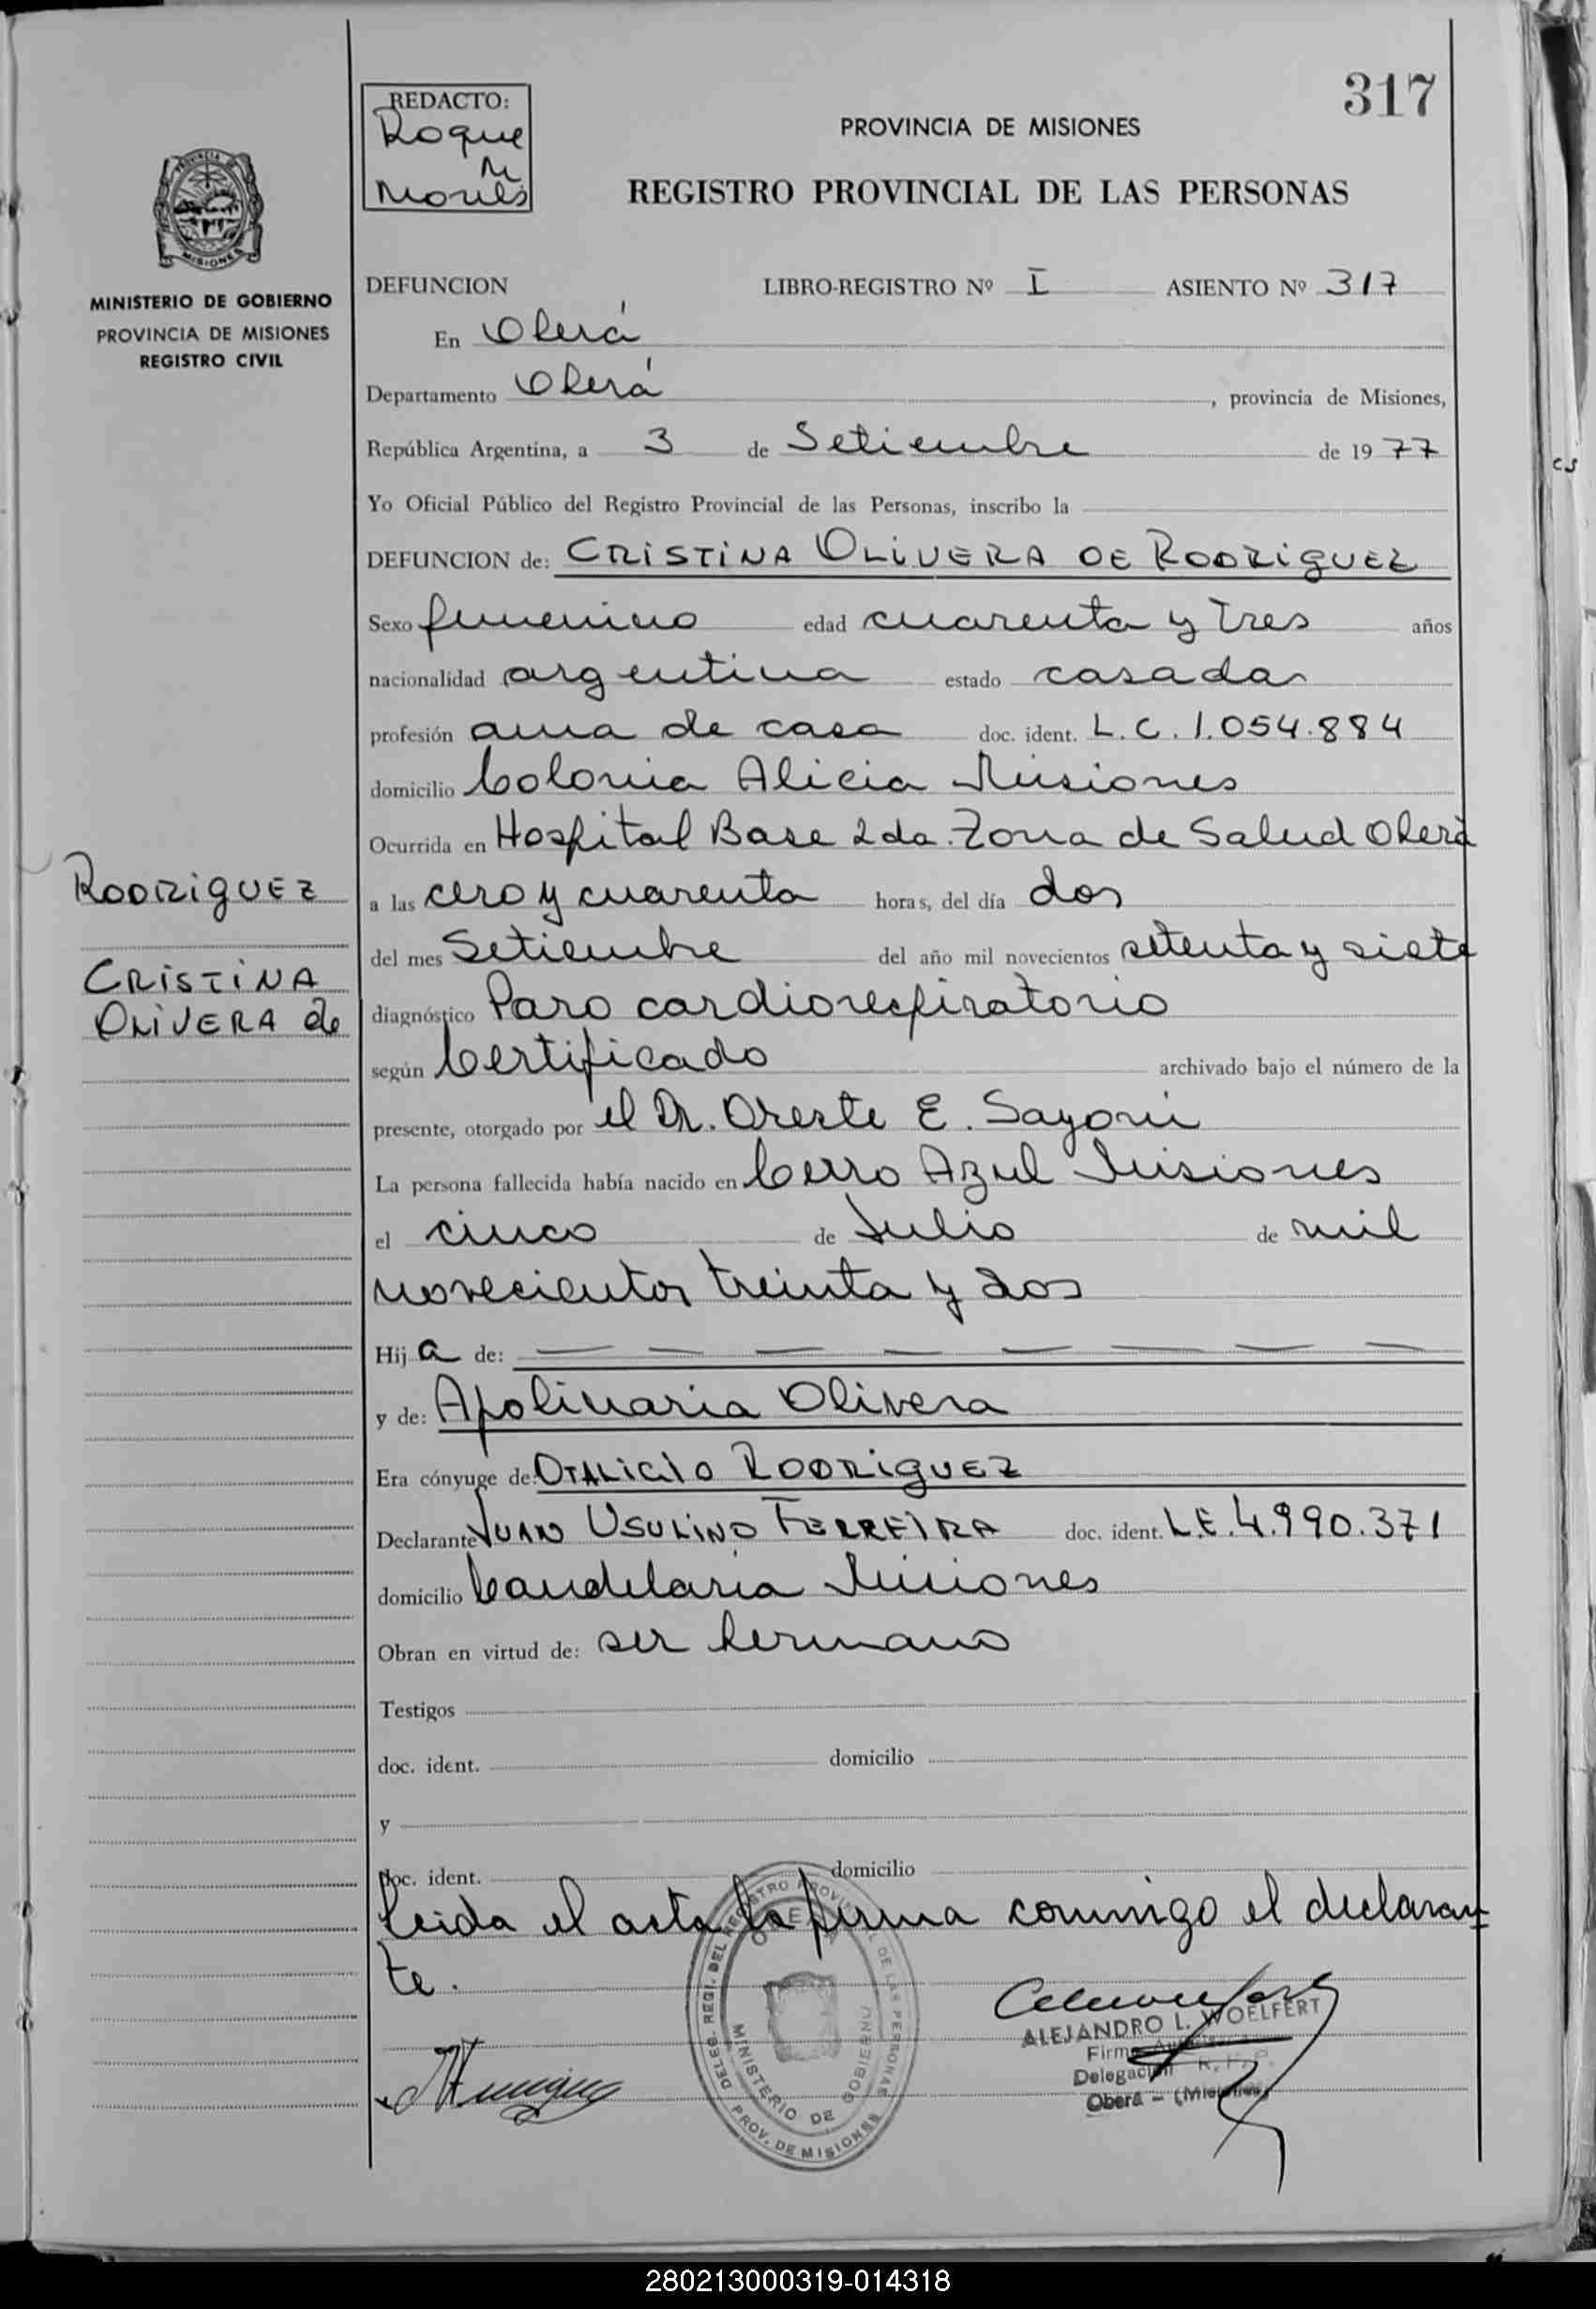 317
REDACTO:
Roque
PROVINCIA DE MISIONES
REGISTRO PROVINCIAL DE LAS PERSONAS
MINISTERIO DE GOBIERNO
PROVINCIA DE MISIONES
REGISTRO CIVIL
DEFUNCION LIBRO-REGISTRO Nº I ASIENTO Nº 317
En Oberá
Departamento Oberá , provincia de Misiones,
República Argentina, a 3 de Setiembre de 1977
Yo Oficial Público del Registro Provincial de las Personas, inscribo la
DEFUNCION de: CRISTINA OLIVERA DE RODRIGUEZ
Sexo femenino edad cuarenta y tres años
nacionalidad argentina estado casada
profesión ama de casa doc. ident. L.C. 1.054.884
domicilio Colonia Alicia Misiones
Ocurrida en Hospital Base 2da. Zona de Salud Oberá
a las cero y cuarenta horas, del día dos
del mes Setiembre del año mil novecientos setenta y siete
diagnóstico Paro cardiorespiratorio
según Certificado archivado bajo el número de la
presente, otorgado por el Dr. Oreste E. Sayoni
La persona fallecida había nacido en Cerro Azul Misiones
el cinco de Julio de mil
novecientos treinta y dos
Hija de: — — — — — — — —
y de: Apolinaria Olivera
Era cónyuge de: OTALICIO RODRIGUEZ
Declarante JUAN USULINO FERREIRA doc. ident. L.E. 4.990.371
domicilio Candelaria Misiones
Obran en virtud de: ser hermano
Testigos
doc. ident. domicilio
y
doc. ident. domicilio
Leida el acta la firma conmigo el declaran
te.
RODRIGUEZ
CRISTINA
OLIVERA de
DELEG. REGI. DEL REGISTRO PROVINCIAL DE LAS PERSONAS
OBERA
MINISTERIO DE GOBIERNO
PROV. DE MISIONES
ALEJANDRO L. WOELFERT
Firma
Delegación R. P. P.
Oberá - (Misiones)
280213000319-014318